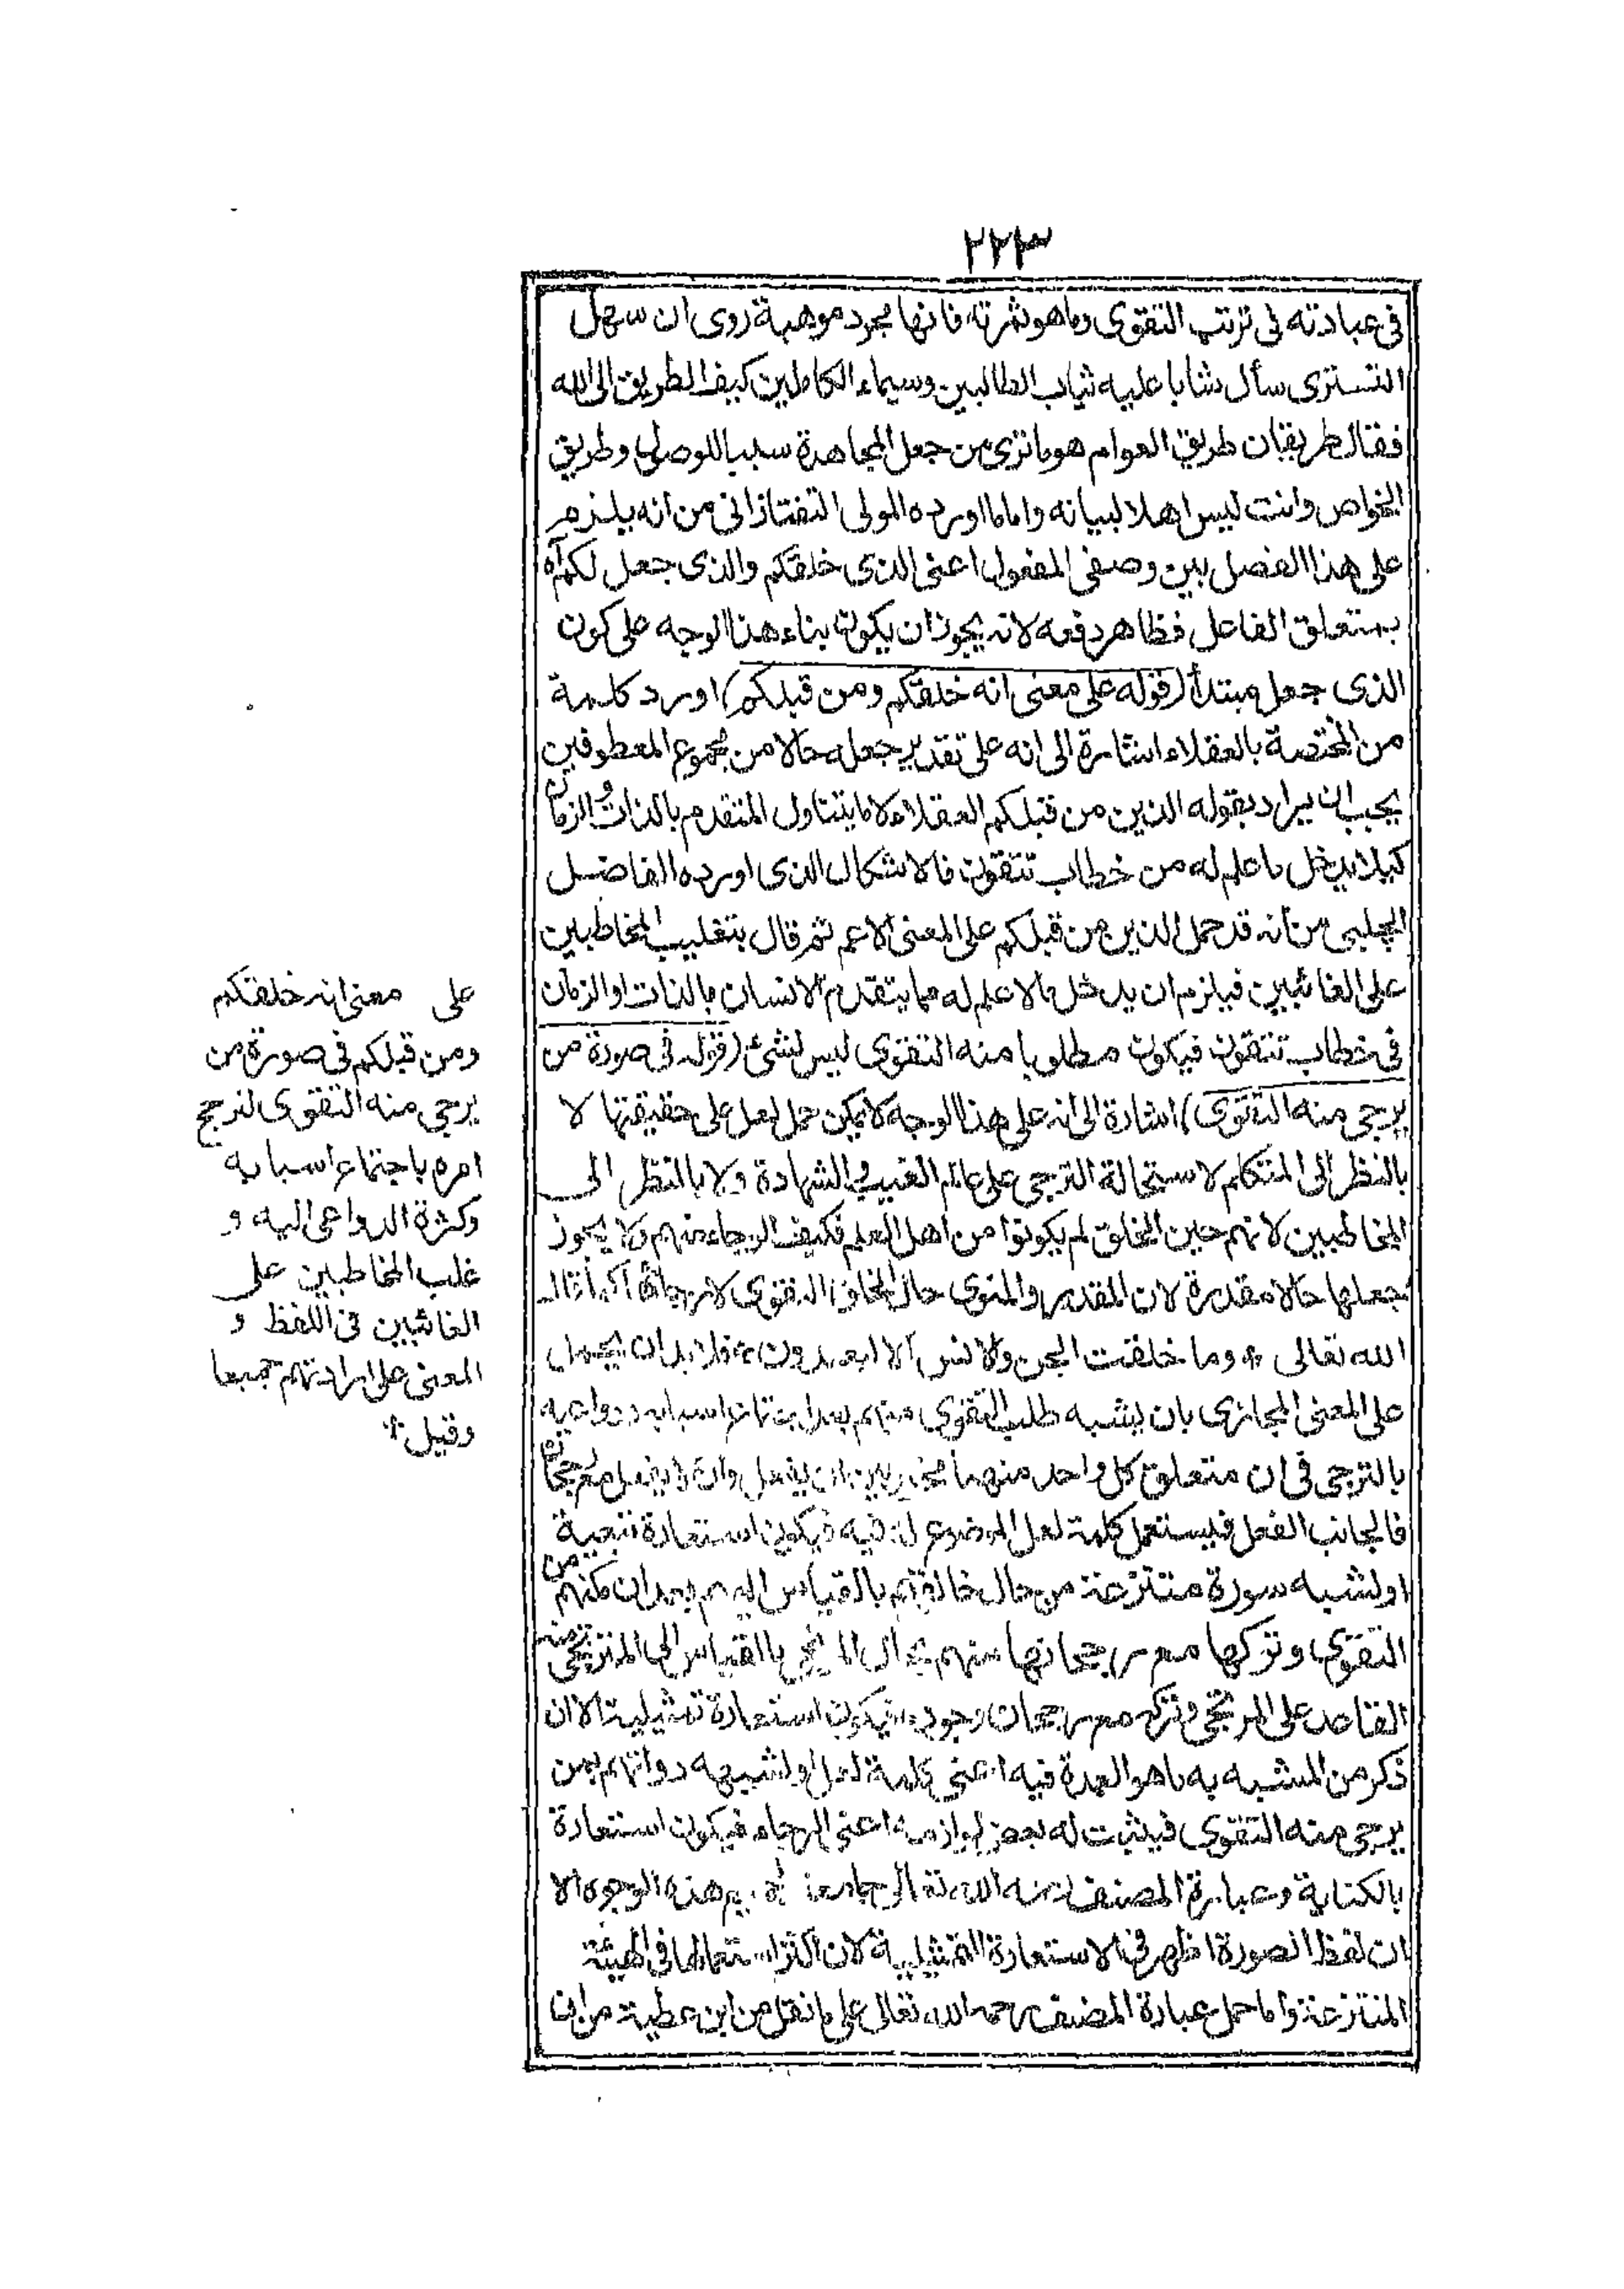 ٢٢٣
في عبادته في ترتب التقوى وما هو ثمرته فانها مجرد موهبة روى ان سهل
التسترى سأل شابا عليه ثياب الطالبين وسيماء الكاملين كيف الطريق الى الله
فقال طريقان طريق العوام هو ما ترى من جعل المجاهدة سببا للوصول وطريق
الخواص وانت ليس اهلا لبيانه واما ما اورده المولى التفتازانى من انه يلزم
على هذا الفصل بين وصفى المفعول اعنى الذى خلقكم والذى جعل لكم آه
بمتعلق الفاعل فظاهر دفعه لانه يجوز ان يكون بناء هذا الوجه على كون
الذى جعل مبتدأ (قوله على معنى انه خلقكم ومن قبلكم) اورد كلمة
من المختصة بالعقلاء اشارة الى انه على تقدير جعله حالا من مجموع المعطوفين
يجب ان يراد بقوله الذين من قبلكم العقلاء لا ما يتناول المتقدم بالذات والزمان
كيلا يدخل ما علم له من خطاب تتقون فالاشكال الذى اورده الفاضل
الچلبى من أنه قد حمل الذين من قبلكم على المعنى الاعم ثم قال بتغليب المخاطبين
على الغائبين فيلزم ان يدخل ما لا علم له مما يتقدم الانسان بالذات او الزمان
فى خطاب تتقون فيكون مطلوبا منه التقوى ليس لشئ (قوله فى صورة من
يرجى منه التقوى) اشارة الى أنه على هذا الوجه لا يمكن حمل لعل على حقيقتها لا
بالنظر الى المتكلم لاستحالة الترجى على عالم الغيب والشهادة ولا بالنظر الى
المخاطبين لانهم حين الخلق لم يكونوا من اهل العلم فكيف الرجاء منهم ولا يجوز
جعلها حالا مقدرة لان المقدر والمنوى حال الخلق التقوى لا رجاؤه كما قال
الله تعالى * وما خلقت الجن والانس الا ليعبدون * فلا بد ان يحمل
على المعنى المجازى بان يشبه طلب التقوى منهم بعد اجتماع اسبابه ودواعيه
بالترجى فى ان متعلق كل واحد منهما مخير بين ان يفعل وان لا يفعل مع رجحان
فالجانب الفعل فيستعمل كلمة لعل الموضوع له فيه فيكون استعارة تبعية
او لشبه صورة منتزعة من حال خالقهم بالقياس اليهم بعد ان مكنهم من
التقوى وتركها مع رجحانها منهم بحال المرتجى بالقياس الى المرتجى منه
القاصد على المرتجى وتركه مع رجحان وجوده فيكون استعارة تمثيلية الا ان
ذكر من المشبه به ما هو العمدة فيه اعنى كلمة لعل او لشبيه ذواتهم بمن
يرجى منه التقوى فيثبت له بعض لوازمه اعنى الرجاء فيكون استعارة
بالكناية وعبارة المصنف رحمه الله تعالى جامعة هذه الوجوه الا
ان لفظ الصورة اظهر فى الاستعارة التمثيلية لان اكثر استعمالها فى الهيئة
المنتزعة واما حمل عبارة المصنف رحمه الله تعالى على ما نقل من ابن عطية من ان
على معنى انه خلقكم
ومن قبلكم فى صورة من
يرجى منه التقوى لترجح
امره باجتماع اسبابه
وكثرة الدواعى اليه و
غلب المخاطبين على
الغائبين فى اللفظ و
المعنى على ارادتهم جميعا
وقيل *